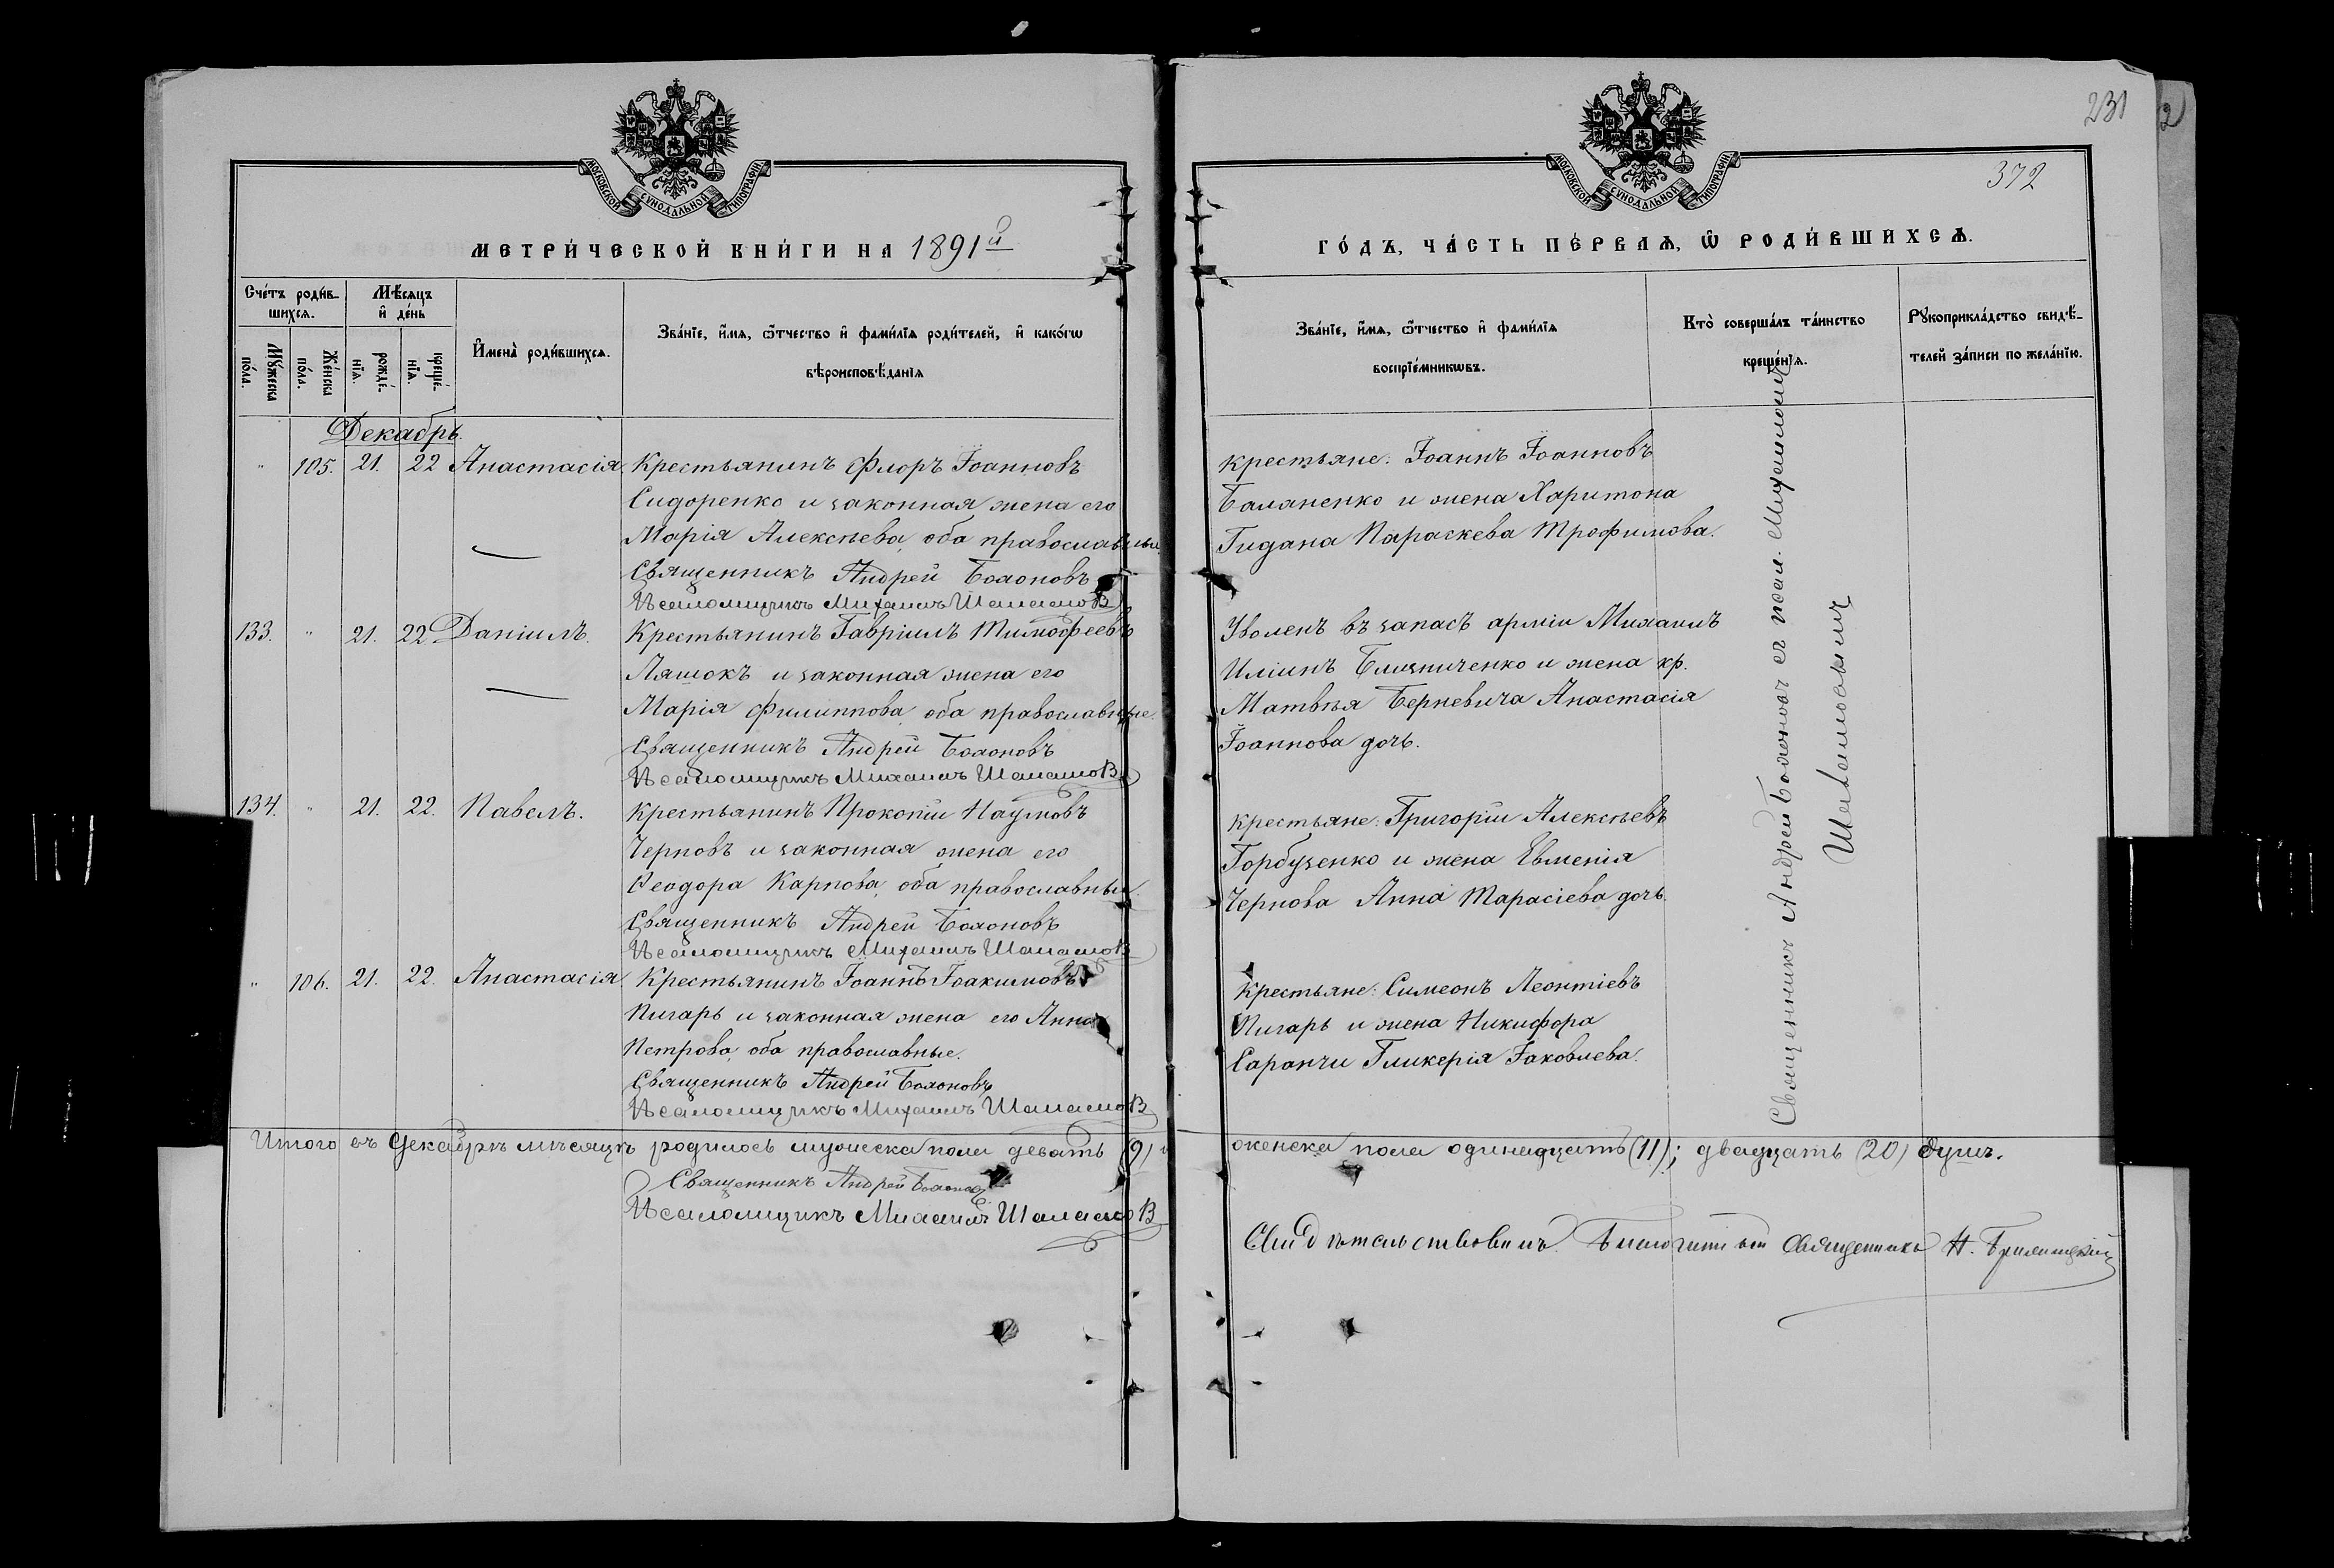 231
2
372
МОСКОВСКОЙ СѴНОДАЛЬНОЙ ТИПОГРАФІИ
МОСКОВСКОЙ СѴНОДАЛЬНОЙ ТИПОГРАФІИ
МЕТРИ́ЧЕСКОЙ КНИ́ГИ НА 1891й
ГО́ДЪ, ЧА́СТЬ ПЕ́РВАѦ, Ѡ РОДИ́ВШИХСѦ.
Сче́тъ роди́в-
шихсѧ.
Мꙋ́жеска по́ла.
Же́нска по́ла.
Мѣ́сѧцъ
и҆ де́нь
рожде́-
нїѧ.
креще́-
нїѧ.
И҆мена̀ роди́вшихсѧ.
Зва́нїе, и҆́мѧ, ѻ҆́тчество и҆ фами́лїѧ роди́телей, и҆ како́гѡ
вѣроисповѣ́данїѧ
Зва́нїе, и҆́мѧ, ѻ҆́тчество и҆ фами́лїѧ
воспрїе́мникѡвъ.
Кто̀ соверша́лъ та́инство
креще́нїѧ.
Рꙋкоприкла́дство свидѣ́-
телей за́писи по жела́нїю.
Декабрь.
" 105. 21. 22 Анастасія. Крестьянинъ Флоръ Іоанновъ
Сидоренко и законная жена его
Марія Алексѣева, оба православные.
Священникъ Андрей
Псаломщикъ Михаилъ
крестьяне: Іоаннъ Іоанновъ
Баланенко и жена Харитона
Гидана Параскева Трофимова.
133. " 21. 22 Даніилъ. Крестьянинъ Гавріилъ Тимофеевъ
Ляшокъ и законная жена его
Марія Филиппова, оба православные.
Священникъ Андрей
Псаломщикъ Михаилъ
Уволенъ въ запасъ арміи Михаилъ
Иліинъ Близниченко и жена кр.
Матвѣя Берневича Анастасія
Іоаннова дочь.
134. " 21. 22. Павелъ. Крестьянинъ Прокопій Наумовъ
Черновъ и законная жена его
Ѳеодора Карпова, оба православные.
Священникъ Андрей
Псаломщикъ Михаилъ
крестьяне: Григорій Алексѣевъ
Горбузенко и жена Евменія
Чернова Анна Тарасіева дочь.
" 106. 21. 22. Анастасія. Крестьянинъ Іоаннъ Іоакимовъ
Пигарь и законная жена его Анна
Петрова, оба православные.
Священникъ Андрей
Псаломщикъ Михаилъ
Крестьяне: Симеонъ Леонтіевъ
Пигарь и жена Никифора
Саранчи Гликерія Іаковлева.
Священникъ Андрей съ псал. Михаиломъ
Итого въ Декабрѣ мѣсяцѣ родилось мужеска пола девять (9) и
женска пола одинадцать (11); двадцать (20) душъ.
Священникъ Андрей
Псаломщикъ Михаилъ
Свидѣтельствовалъ: Благочинный Священникъ